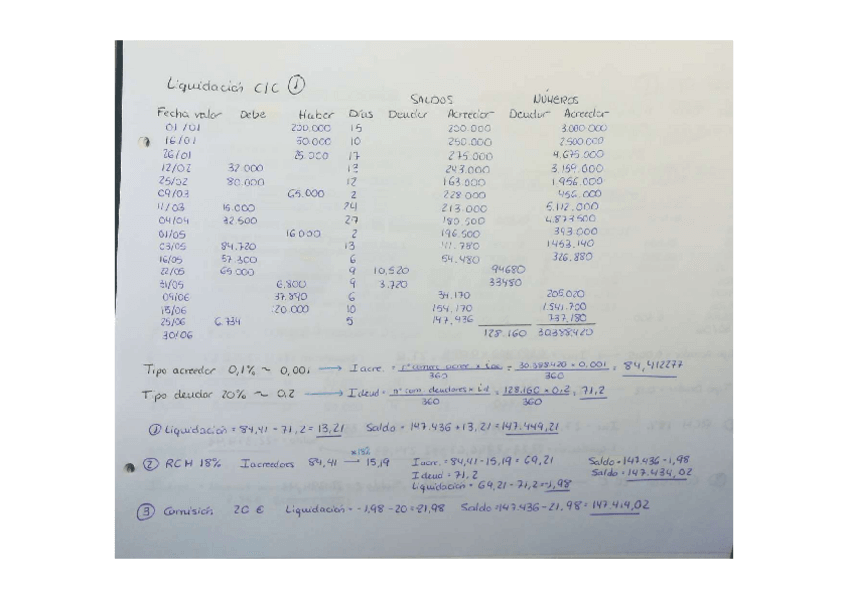 Liquidación C/C ①
SALDOS NÚMEROS
Fecha valor Debe Haber Días Deudor Acreedor Deudor Acreedor
01/01 200.000 15 200.000 3.000.000
16/01 50.000 10 250.000 2.500.000
26/01 25.000 17 275.000 4.675.000
12/02 32.000 13 243.000 3.159.000
25/02 80.000 12 163.000 1.956.000
09/03 65.000 2 228.000 456.000
11/03 15.000 24 213.000 5.112.000
04/04 32.500 27 180.500 4.873.500
01/05 16.000 2 196.500 393.000
03/05 84.720 13 111.780 1.453.140
16/05 57.300 6 54.480 326.880
22/05 65.000 9 10.520 94680
31/05 6.800 9 3.720 33480
09/06 37.890 6 34.170 205.020
15/06 120.000 10 154.170 1.541.700
25/06 6.734 5 147.436 737.180
30/06 128.160 30.388.420
Tipo acreedor 0,1% ~ 0,001 → I acre. = nº comerc acree × iac / 360 = 30.388.420 × 0.001 / 360 = 84,412277
Tipo deudor 20% ~ 0.2 → I deud = nº com. deudores × id / 360 = 128.160 × 0.2 / 360 = 71,2
① Liquidación = 84,41 - 71,2 = 13,21 Saldo = 147.436 + 13,21 = 147.449,21
×182
② RCM 18% Iacreedores 84,41 → 15,19 I acre. = 84,41 - 15,19 = 69,21 Saldo = 147.436 - 1,98
I deud = 71,2 Saldo = 147.434,02
Liquidación = 69,21 - 71,2 = -1,98
③ Comisión 20 € Liquidación = -1,98 - 20 = 21,98 Saldo = 147.436 - 21,98 = 147.414,02